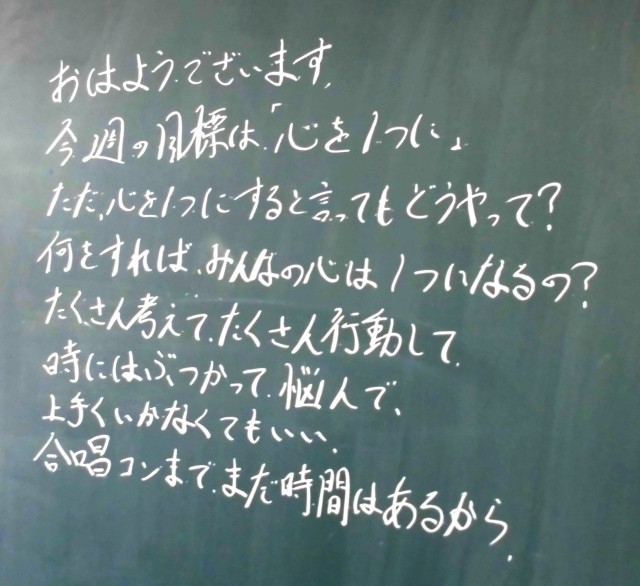 おはようございます。
今週の目標は「心を1つに」
ただ、心を1つにすると言ってもどうやって?
何をすれば、みんなの心は1つになるの?
たくさん考えて、たくさん行動して、
時にはぶつかって、悩んで、
上手くいかなくてもいい、
合唱コンまで、まだ時間はあるから。